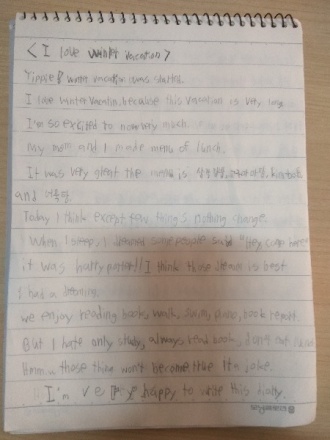 < I love winter vacation >
Yippie! winter vacation was started.
I love winter vacation, because this vacation is very long
I'm so excited to now very much.
My mom and I made menu of lunch.
It was very great the menu is
and
Today I think except few things nothing change.
When I sleep, I dreamed some people said "Hey, come here
it was harry potter! I think those dream is best
I had a
we enjoy reading book, walk, swim, piano, book report.
But I hate only study, always read book, don't eat
Hmm.. those them won't become true It's joke.
I'm very happy to write this diary.